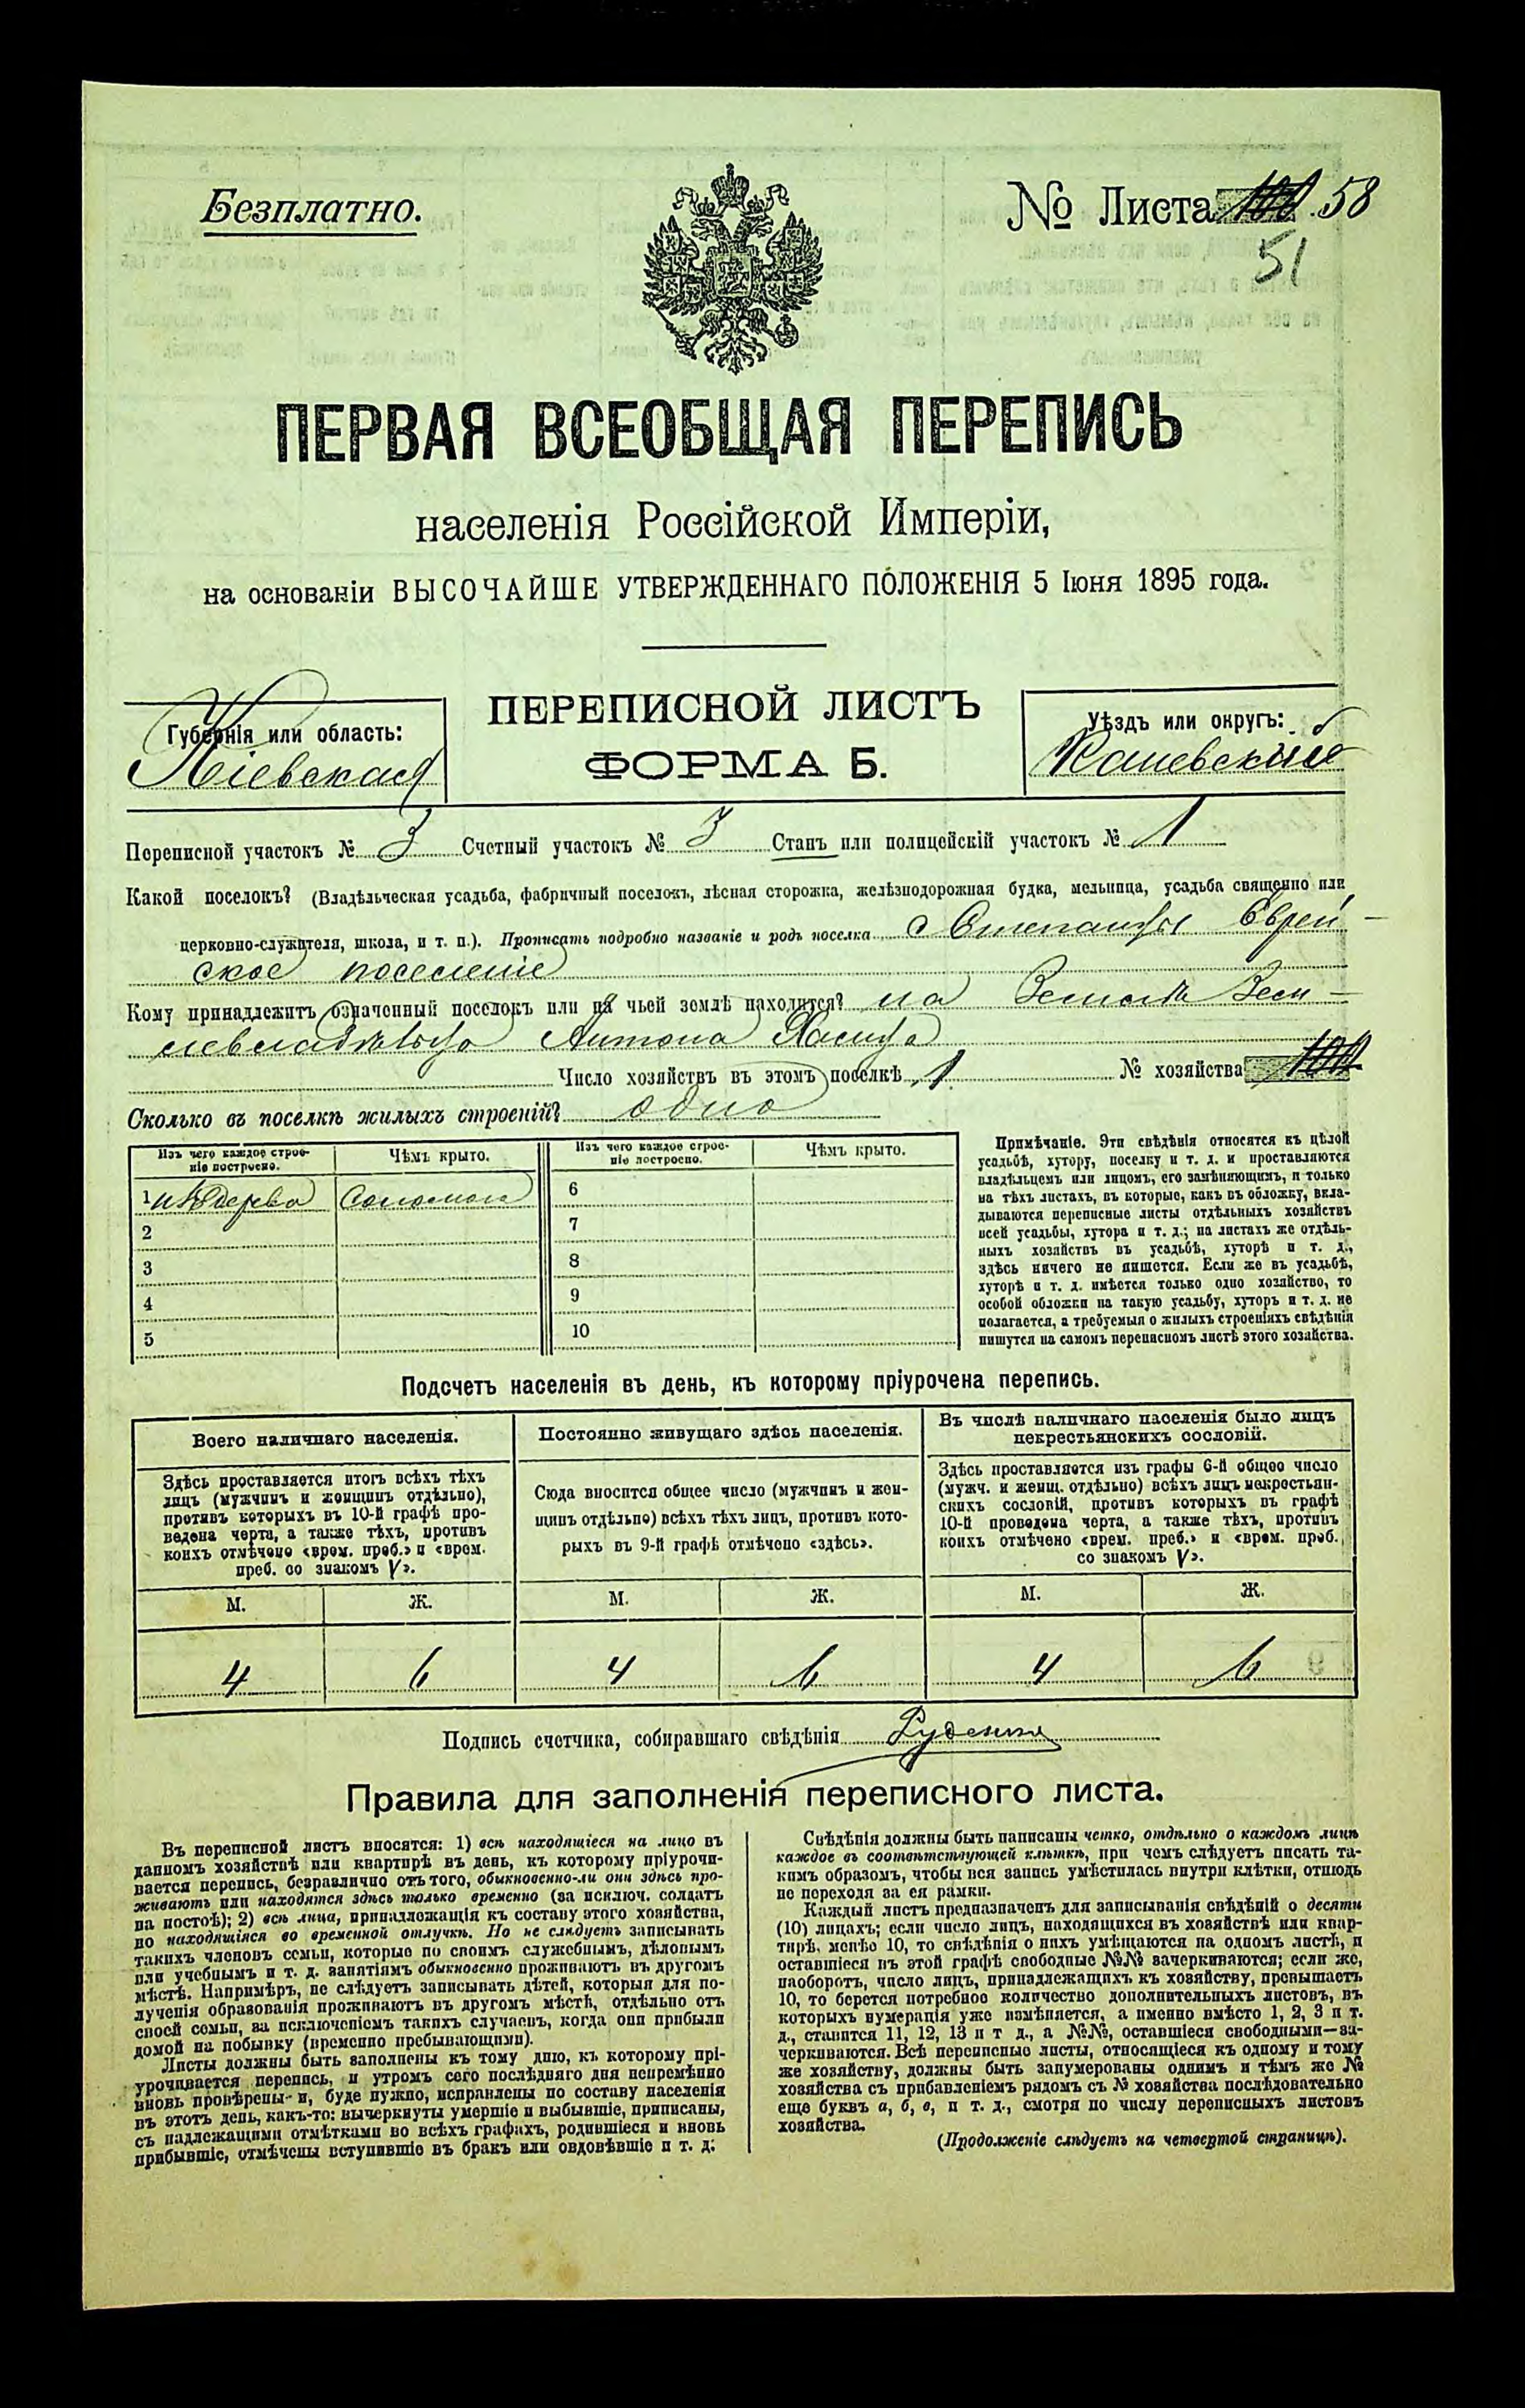 Безплатно.
№ Листа 58
51
ПЕРВАЯ ВСЕОБЩАЯ ПЕРЕПИСЬ
населенія Россійской Имперіи,
на основаніи ВЫСОЧАЙШЕ УТВЕРЖДЕННАГО ПОЛОЖЕНІЯ 5 Іюня 1895 года.
Губернія или область:
Кіевская
ПЕРЕПИСНОЙ ЛИСТЪ
ФОРМА Б.
Уѣздъ или округъ:
Каневскій
Переписной участокъ № 3 Счетный участокъ № 3 Станъ или полицейскій участокъ № 1
Какой поселокъ? (Владѣльческая усадьба, фабричный поселокъ, лѣсная сторожка, желѣзнодорожная будка, мельница, усадьба священно или
церковно-служителя, школа, и т. п.). Прописать подробно названіе и родъ поселка с Степанцы Еврей-
ское поселеніе
Кому принадлежитъ означенный поселокъ или на чьей землѣ находится? на Землѣ Зем-
левладѣльца Антона
Число хозяйствъ въ этомъ поселкѣ 1 № хозяйства
Сколько въ поселкѣ жилыхъ строеній? одно
Изъ чего каждое строе-
ніе построено.
Чѣмъ крыто.
Изъ чего каждое строе-
ніе построено.
Чѣмъ крыто.
1 изъ дерева Соломою
2
3
4
5
6
7
8
9
10
Примѣчаніе. Эти свѣдѣнія относятся къ цѣлой
усадьбѣ, хутору, поселку и т. д. и проставляются
владѣльцемъ или лицомъ, его замѣняющимъ, и только
на тѣхъ листахъ, въ которые, какъ въ обложку, вкла-
дываются переписные листы отдѣльныхъ хозяйствъ
всей усадьбы, хутора и т. д.; на листахъ же отдѣль-
ныхъ хозяйствъ въ усадьбѣ, хуторѣ и т. д.,
здѣсь ничего не пишется. Если же въ усадьбѣ,
хуторѣ и т. д. имѣется только одно хозяйство, то
особой обложки на такую усадьбу, хуторъ и т. д. не
полагается, а требуемыя о жилыхъ строеніяхъ свѣдѣнія
пишутся на самомъ переписномъ листѣ этого хозяйства.
Подсчетъ населенія въ день, къ которому пріурочена перепись.
Всего наличнаго населенія.
Здѣсь проставляется итогъ всѣхъ тѣхъ
лицъ (мужчинъ и женщинъ отдѣльно),
противъ которыхъ въ 10-й графѣ про-
ведена черта, а также тѣхъ, противъ
коихъ отмѣчено «врем. преб.» и «врем.
преб. со знакомъ V».
Постоянно живущаго здѣсь населенія.
Сюда вносится общее число (мужчинъ и жен-
щинъ отдѣльно) всѣхъ тѣхъ лицъ, противъ кото-
рыхъ въ 9-й графѣ отмѣчено «здѣсь».
Въ числѣ наличнаго населенія было лицъ
некрестьянскихъ сословій.
Здѣсь проставляется изъ графы 6-й общее число
(мужч. и женщ. отдѣльно) всѣхъ лицъ некрестьян-
скихъ сословій, противъ которыхъ въ графѣ
10-й проведена черта, а также тѣхъ, противъ
коихъ отмѣчено «врем. преб.» и «врем. преб.,
со знакомъ V».
М. Ж. М. Ж. М. Ж.
4 6 4 6 4 6
Подпись счетчика, собиравшаго свѣдѣнія Руденко
Правила для заполненія переписного листа.
Въ переписной листъ вносятся: 1) всѣ находящіеся на лицо въ
данномъ хозяйствѣ или квартирѣ въ день, къ которому пріурочи-
вается перепись, безразлично отъ того, обыкновенно-ли они здѣсь про-
живаютъ или находятся здѣсь только временно (за исключ. солдатъ
на постоѣ); 2) всѣ лица, принадлежащія къ составу этого хозяйства,
но находящіяся во временной отлучкѣ. Но не слѣдуетъ записывать
такихъ членовъ семьи, которые по своимъ служебнымъ, дѣловымъ
или учебнымъ и т. д. занятіямъ обыкновенно проживаютъ въ другомъ
мѣстѣ. Напримѣръ, не слѣдуетъ записывать дѣтей, которыя для по-
лученія образованія проживаютъ въ другомъ мѣстѣ, отдѣльно отъ
своей семьи, за исключеніемъ такихъ случаевъ, когда они прибыли
домой на побывку (временно пребывающими).
Листы должны быть заполнены къ тому дню, къ которому прі-
урочивается перепись, и утромъ сего послѣдняго дня непремѣнно
вновь провѣрены и, буде нужно, исправлены по составу населенія
въ этотъ день, какъ-то: вычеркнуты умершіе и выбывшіе, приписаны,
съ надлежащими отмѣтками во всѣхъ графахъ, родившіеся и вновь
прибывшіе, отмѣчены вступившіе въ бракъ или овдовѣвшіе и т. д.
Свѣдѣнія должны быть написаны четко, отдѣльно о каждомъ лицѣ
каждое въ соотвѣтствующей клѣткѣ, при чемъ слѣдуетъ писать та-
кимъ образомъ, чтобы вся запись умѣстилась внутри клѣтки, отнюдь
не переходя за ея рамки.
Каждый листъ предназначенъ для записыванія свѣдѣній о десяти
(10) лицахъ; если число лицъ, находящихся въ хозяйствѣ или квар-
тирѣ, менѣе 10, то свѣдѣнія о нихъ умѣщаются на одномъ листѣ, и
оставшіеся въ этой графѣ свободные №№ вачеркиваются; если же,
наоборотъ, число лицъ, принадлежащихъ къ хозяйству, превышаетъ
10, то берется потребное количество дополнительныхъ листовъ, въ
которыхъ нумерація уже измѣняется, а именно вмѣсто 1, 2, 3 и т.
д., ставится 11, 12, 13 и т д., а №№, оставшіеся свободными—за-
черкиваются. Всѣ переписные листы, относящіеся къ одному и тому
же хозяйству, должны быть занумерованы однимъ и тѣмъ же №
хозяйства съ прибавленіемъ рядомъ съ № хозяйства послѣдовательно
еще буквъ а, б, в, и т. д., смотря по числу переписныхъ листовъ
хозяйства.
(Продолженіе слѣдуетъ на четвертой страницѣ).